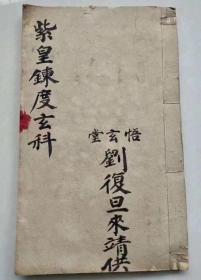 紫皇鍊度玄科
悟玄堂
劉復旦來靖供